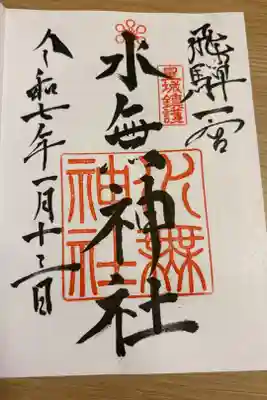 飛騨一宮
皇城鎮護
水無神社
水無神社
令和七年一月十二日